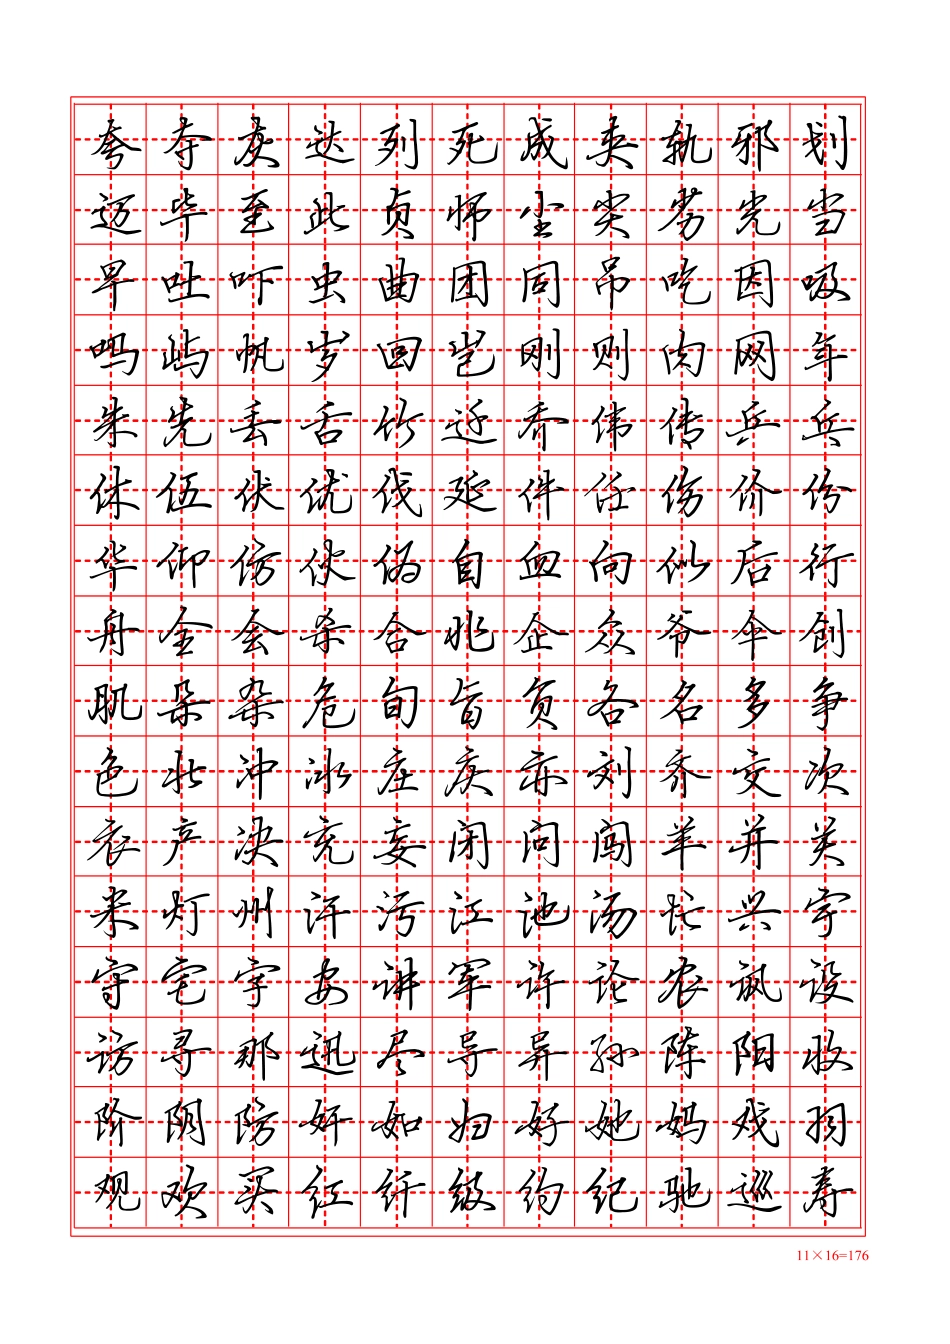 夸夺灰达列死成夹轨邪划
迈毕至此贞师尘尖劣光当
早吐吓虫曲团同吊吃因吸
吗屿帆岁回岂刚则肉网年
朱先丢舌竹迁乔伟传乒乓
休伍伏优伐延件任伤价份
华仰仿伙伪自血向似后行
舟全会杀合兆企众爷伞创
肌朵杂危旬旨负各名多争
色壮冲冰庄庆亦刘齐交次
衣产决充妄闭问闯羊并关
米灯州汗污江池汤忙兴宇
守宅字安讲军许论农讽设
访寻那迅尽导异孙阵阳收
阶阴防奸如妇好她妈戏羽
观欢买红纤级约纪驰巡寿
11×16=176